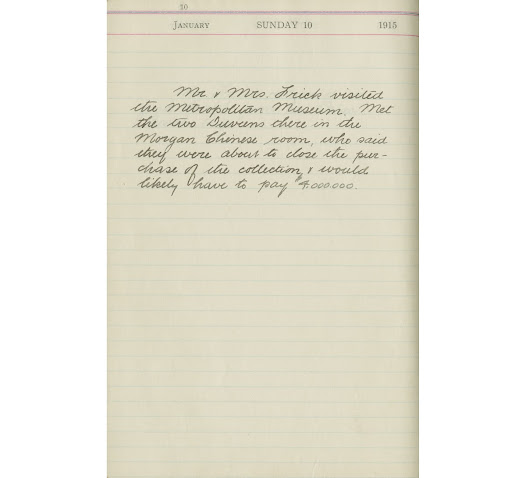 10
JANUARY SUNDAY 10 1915
Mr. & Mrs. Frick visited
the Metropolitan Museum. Met
the two Duveens there in the
Morgan Chinese room, who said
they were about to close the pur-
chase of the collection, & would
likely have to pay $4.000.000.